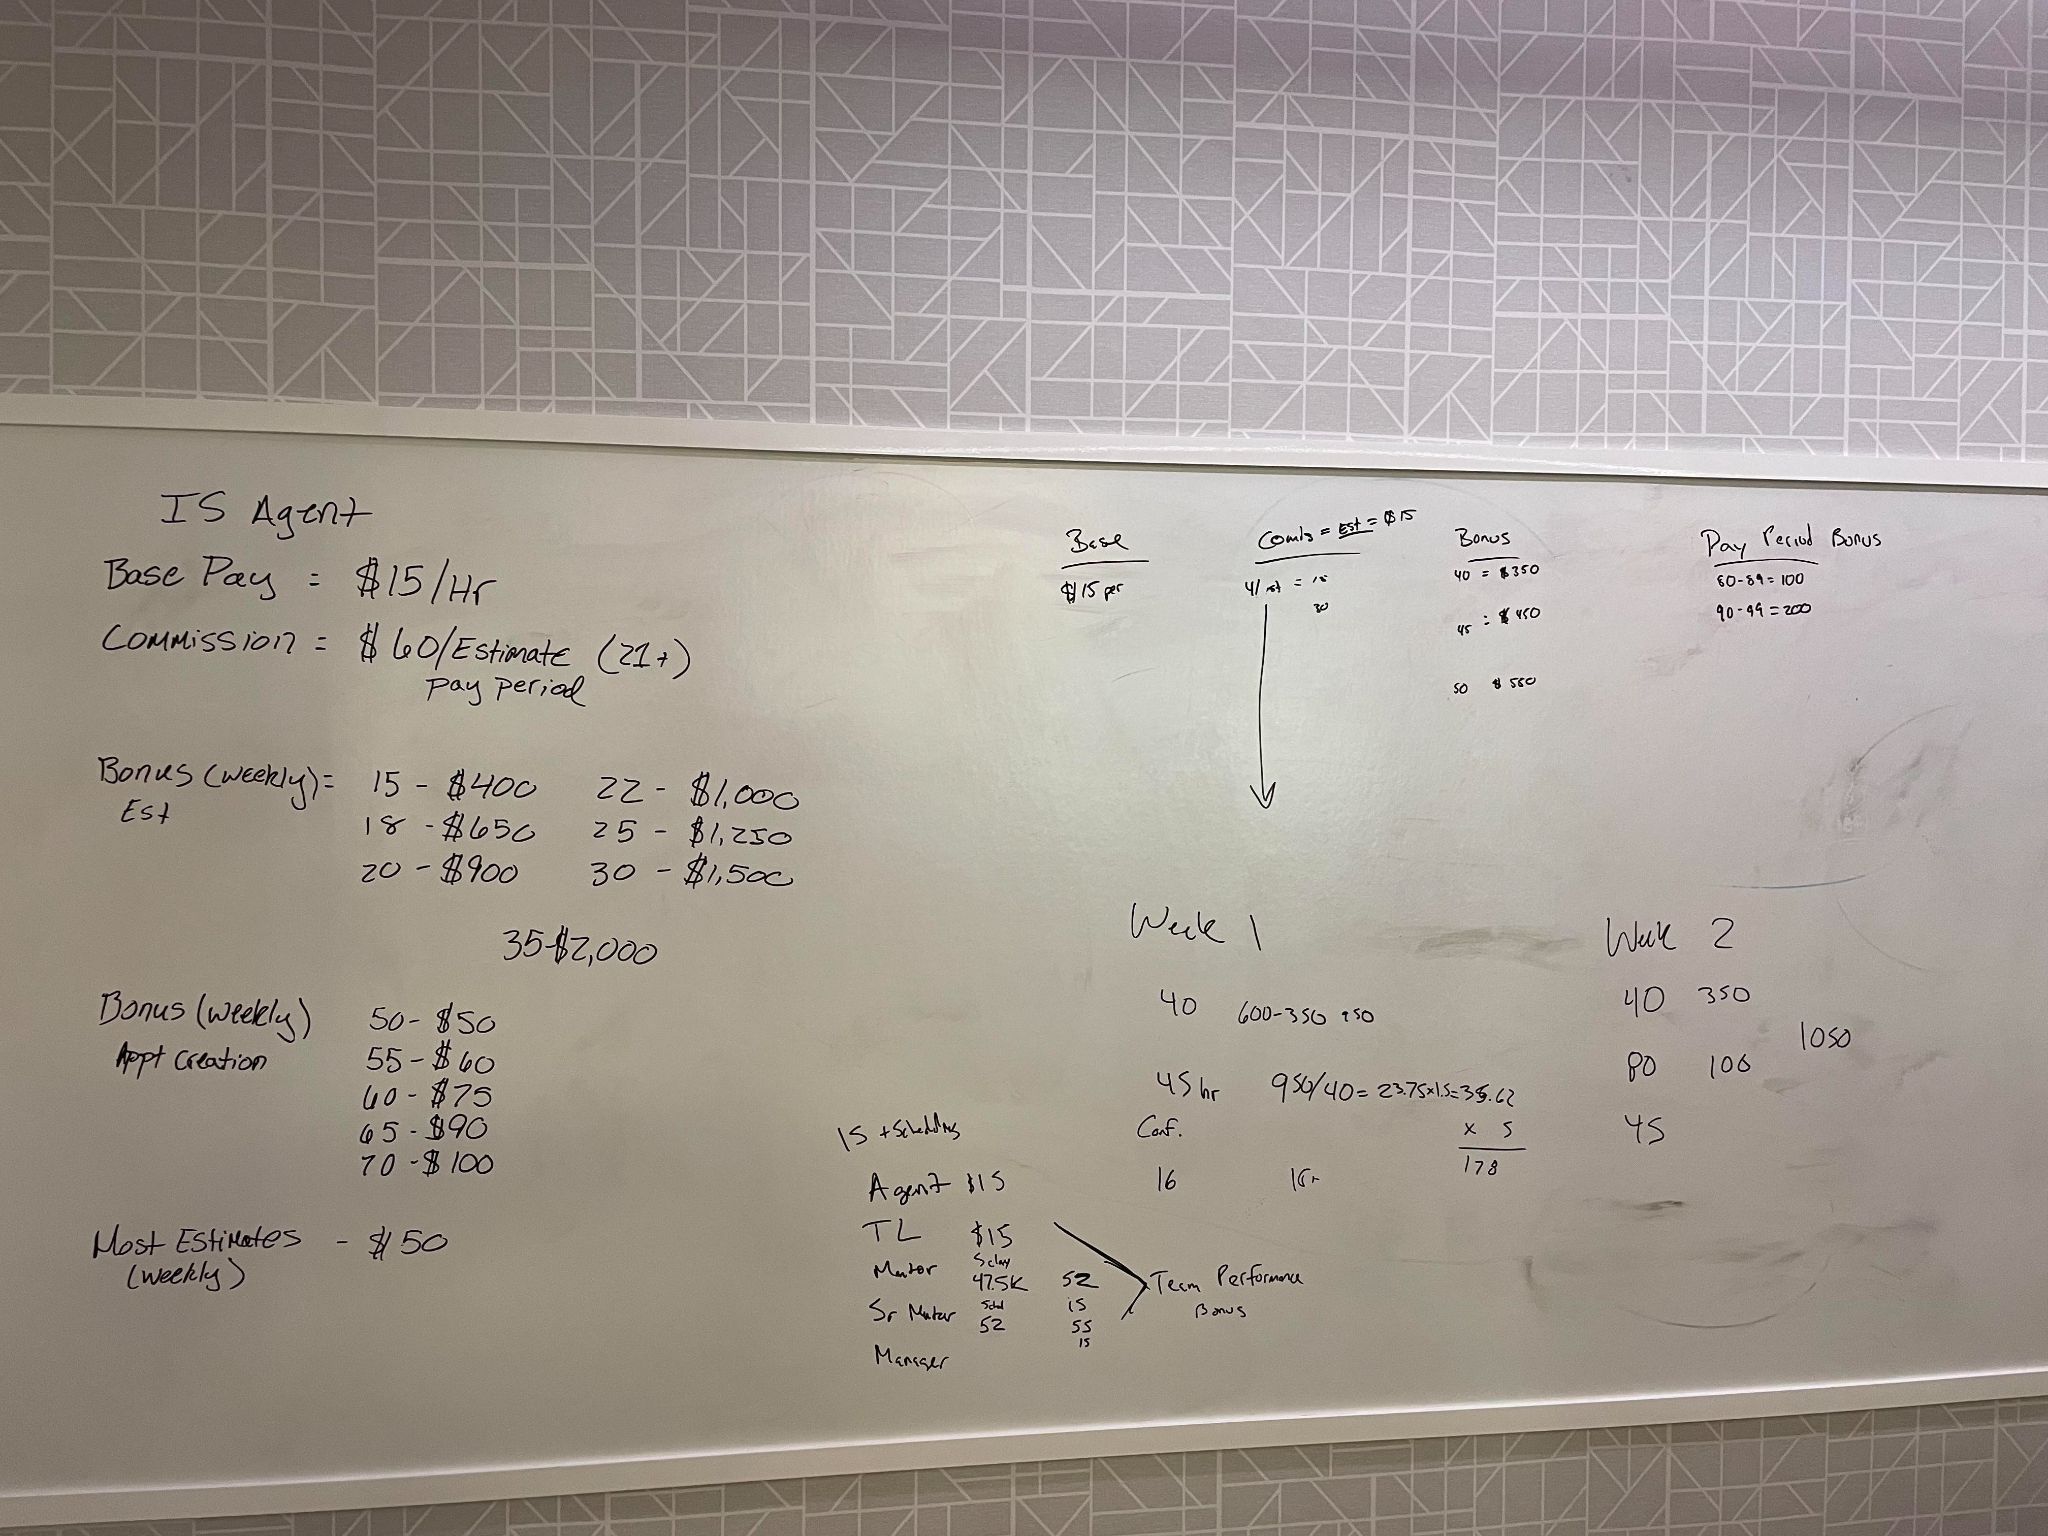 IS Agent
Base Pay = $15/Hr
Commission = $60/Estimate (21+)
Pay Period
Bonus (weekly) =
Est
15 - $400 22 - $1,000
18 - $650 25 - $1,250
20 - $900 30 - $1,500
35-$2,000
Bonus (weekly)
Appt Creation
50 - $50
55 - $60
60 - $75
65 - $90
70 - $100
Most Estimates - $150
(weekly)
Base
$15 per
= Est = $15
4/ =
30
Bonus
40 = $350
45 = $450
50 $550
Pay Period Bonus
80-89 = 100
90-99 = 200
Week 1
40 600-350 950
45 hr 950/40 = 23.75x1.5=35.62
x 5
178
Conf.
16
Week 2
40 350
1050
80 100
45
IS + Scheduling
Agent $15
TL $15
Mentor 47.5K 52
IS
Sr Mentor 52 55
IS
Manager
Team Performance
Bonus